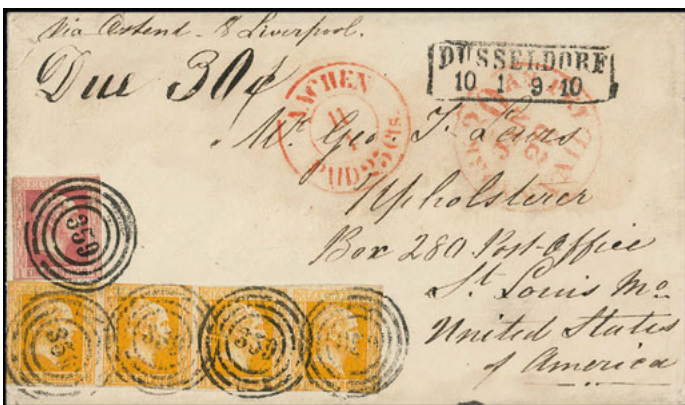 Via Ostend & Liverpool.
Due 30¢
DUSSELDORF
10 1 9 10
AACHEN
11
PAID 25 Cts.
PAID
Mr. Geo. T.
Upholsterer
Box 280 Post-Office
St. Louis Mo
United States
of America
359
359
359
359